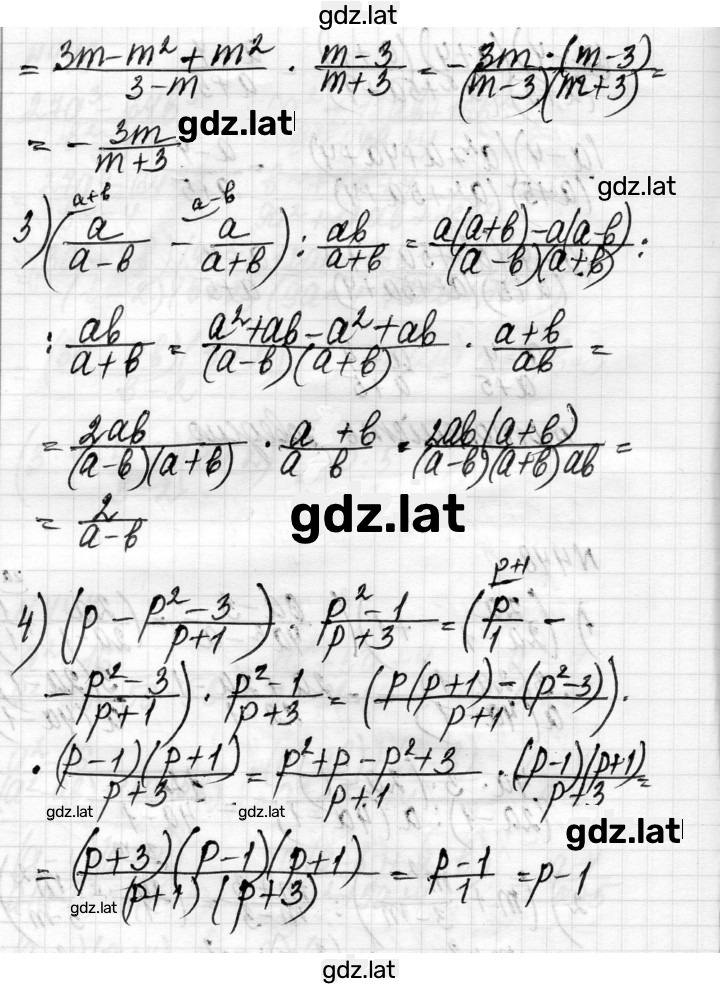 gdz.lat
= (3m-m²+m²)/(3-m) · (m-3)/(m+3) = -(3m·(m-3))/((m-3)(m+3)) =
= -3m/(m+3)
gdz.lat
gdz.lat
3) (a/(a-в) - a/(a+в)) : aв/(a+в) = (a(a+в)-a(a-в))/((a-в)(a+в)) :
a+в a-в
: aв/(a+в) = (a²+aв-a²+aв)/((a-в)(a+в)) · (a+в)/(aв) =
= 2aв/((a-в)(a+в)) · (a +в)/(a в) = 2aв(a+в)/((a-в)(a+в)aв) =
= 2/(a-в)
gdz.lat
p+1
4) (p - (p²-3)/(p+1)) · (p²-1)/(p+3) = (p/1 -
- (p²-3)/(p+1)) · (p²-1)/(p+3) = ((p(p+1)-(p²-3))/(p+1)) ·
· ((p-1)(p+1))/(p+3) = (p²+p-p²+3)/(p+1) · ((p-1)(p+1))/(p+3) =
gdz.lat
gdz.lat
gdz.lat
= ((p+3)(p-1)(p+1))/((p+1)(p+3)) = (p-1)/1 = p-1
gdz.lat
gdz.lat